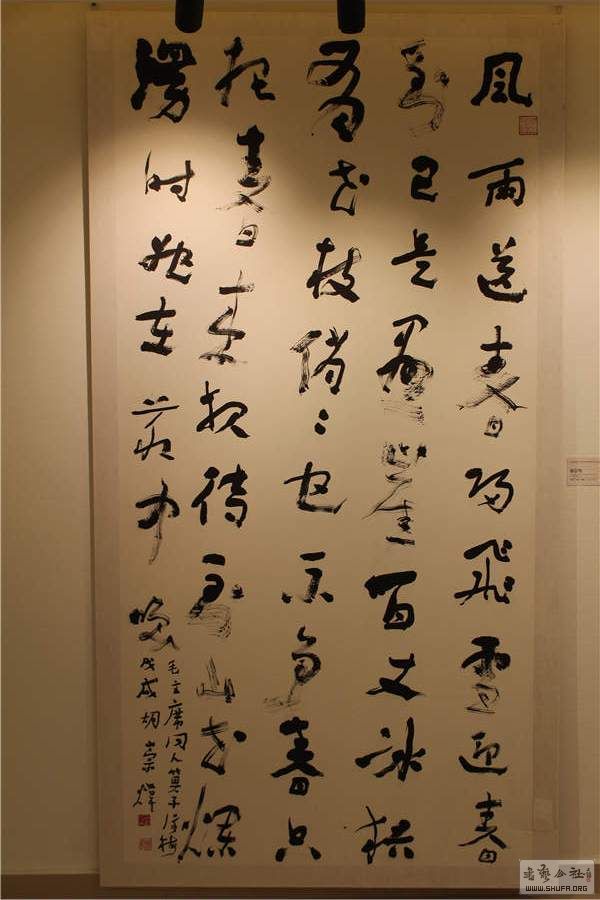 風雨送春歸飛雪迎春
到已是懸崖百丈冰猶
有花枝俏〻也不争春只
把春来報待到山花爛
漫時她在叢中笑
毛主席词卜算子詠梅
戊戌胡崇煒
書藝公社
WWW.SHUFA.ORG